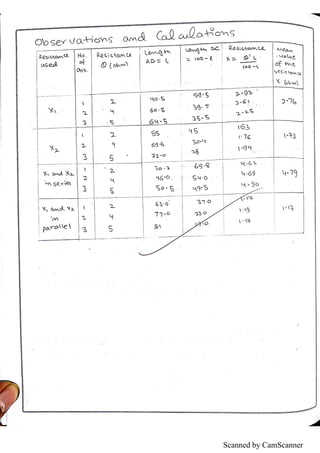 Observations and Calculations
Resistance used | No. of Obs. | Resistance Q (ohm) | Length AD = l | Length DC = 100-l | Resistance X = Q·l / 100-l | Mean value of the resistance X (ohm)
X1 | 1 | 2 | 40.5 | 59.5 | 2.92 | 2.76
2 | 4 | 60.5 | 39.5 | 2.61
3 | 5 | 64.5 | 35.5 | 2.25
X2 | 1 | 2 | 55 | 45 | 1.63 | 1.73
2 | 4 | 69.6 | 30.4 | 1.76
3 | 5 | 72.0 | 28 | 1.94
X1 and X2 in series | 1 | 2 | 30.2 | 69.8 | 4.62 | 4.79
2 | 4 | 46.0 | 54.0 | 4.69
3 | 5 | 50.5 | 49.5 | 4.90
X1 and X2 in parallel | 1 | 2 | 63.0 | 37.0 | 1.17 | 1.17
2 | 4 | 77.0 | 23.0 | 1.19
3 | 5 | 81 | 19.0 | 1.17
Scanned by CamScanner